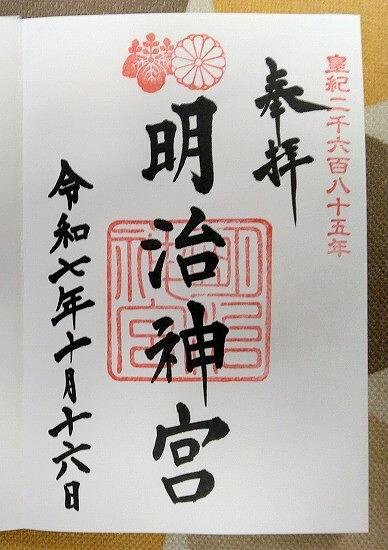 皇紀二千六百八十五年
奉拝
明治神宮
明治神宮
令和七年十月十六日